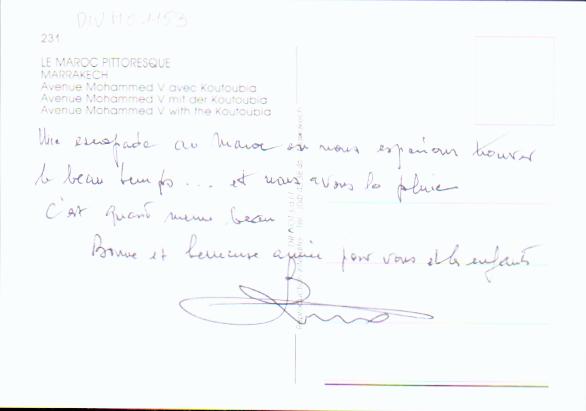 DIV MO 1153
231
LE MAROC PITTORESQUE
MARRAKECH
Avenue Mohammed V avec Koutoubia
Avenue Mohammed V mit der Koutoubia
Avenue Mohammed V with the Koutoubia
Une escapade au Maroc où nous espérions trouver
le beau temps... et nous avons la pluie
C'est quand meme beau
Bonne et heureuse année pour vous et les enfants